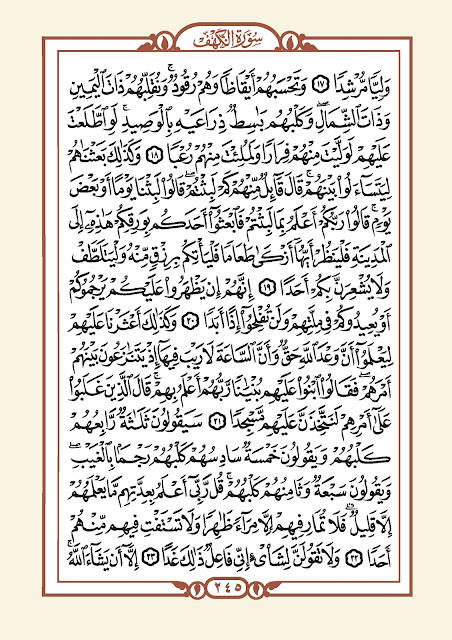 سُورَةُ الْكَهْفِ
وَلِيًّا مُّرْشِدًا ﴿١٧﴾ وَتَحْسَبُهُمْ أَيْقَاظًا وَهُمْ رُقُودٌ ۚ وَنُقَلِّبُهُمْ ذَاتَ الْيَمِينِ
وَذَاتَ الشِّمَالِ ۖ وَكَلْبُهُم بَاسِطٌ ذِرَاعَيْهِ بِالْوَصِيدِ ۚ لَوِ اطَّلَعْتَ
عَلَيْهِمْ لَوَلَّيْتَ مِنْهُمْ فِرَارًا وَلَمُلِئْتَ مِنْهُمْ رُعْبًا ﴿١٨﴾ وَكَذَٰلِكَ بَعَثْنَاهُمْ
لِيَتَسَاءَلُوا بَيْنَهُمْ ۚ قَالَ قَائِلٌ مِّنْهُمْ كَمْ لَبِثْتُمْ ۖ قَالُوا لَبِثْنَا يَوْمًا أَوْ بَعْضَ
يَوْمٍ ۚ قَالُوا رَبُّكُمْ أَعْلَمُ بِمَا لَبِثْتُمْ فَابْعَثُوا أَحَدَكُم بِوَرِقِكُمْ هَٰذِهِ إِلَى
الْمَدِينَةِ فَلْيَنظُرْ أَيُّهَا أَزْكَىٰ طَعَامًا فَلْيَأْتِكُم بِرِزْقٍ مِّنْهُ وَلْيَتَلَطَّفْ
وَلَا يُشْعِرَنَّ بِكُمْ أَحَدًا ﴿١٩﴾ إِنَّهُمْ إِن يَظْهَرُوا عَلَيْكُمْ يَرْجُمُوكُمْ
أَوْ يُعِيدُوكُمْ فِي مِلَّتِهِمْ وَلَن تُفْلِحُوا إِذًا أَبَدًا ﴿٢٠﴾ وَكَذَٰلِكَ أَعْثَرْنَا عَلَيْهِمْ
لِيَعْلَمُوا أَنَّ وَعْدَ اللَّهِ حَقٌّ وَأَنَّ السَّاعَةَ لَا رَيْبَ فِيهَا إِذْ يَتَنَازَعُونَ بَيْنَهُمْ
أَمْرَهُمْ ۖ فَقَالُوا ابْنُوا عَلَيْهِم بُنْيَانًا ۖ رَّبُّهُمْ أَعْلَمُ بِهِمْ ۚ قَالَ الَّذِينَ غَلَبُوا
عَلَىٰ أَمْرِهِمْ لَنَتَّخِذَنَّ عَلَيْهِم مَّسْجِدًا ﴿٢١﴾ سَيَقُولُونَ ثَلَاثَةٌ رَّابِعُهُمْ
كَلْبُهُمْ وَيَقُولُونَ خَمْسَةٌ سَادِسُهُمْ كَلْبُهُمْ رَجْمًا بِالْغَيْبِ ۖ
وَيَقُولُونَ سَبْعَةٌ وَثَامِنُهُمْ كَلْبُهُمْ ۚ قُل رَّبِّي أَعْلَمُ بِعِدَّتِهِم مَّا يَعْلَمُهُمْ
إِلَّا قَلِيلٌ ۗ فَلَا تُمَارِ فِيهِمْ إِلَّا مِرَاءً ظَاهِرًا وَلَا تَسْتَفْتِ فِيهِم مِّنْهُمْ
أَحَدًا ﴿٢٢﴾ وَلَا تَقُولَنَّ لِشَايْءٍ إِنِّي فَاعِلٌ ذَٰلِكَ غَدًا ﴿٢٣﴾ إِلَّا أَن يَشَاءَ اللَّهُ ۚ
٢٤٥